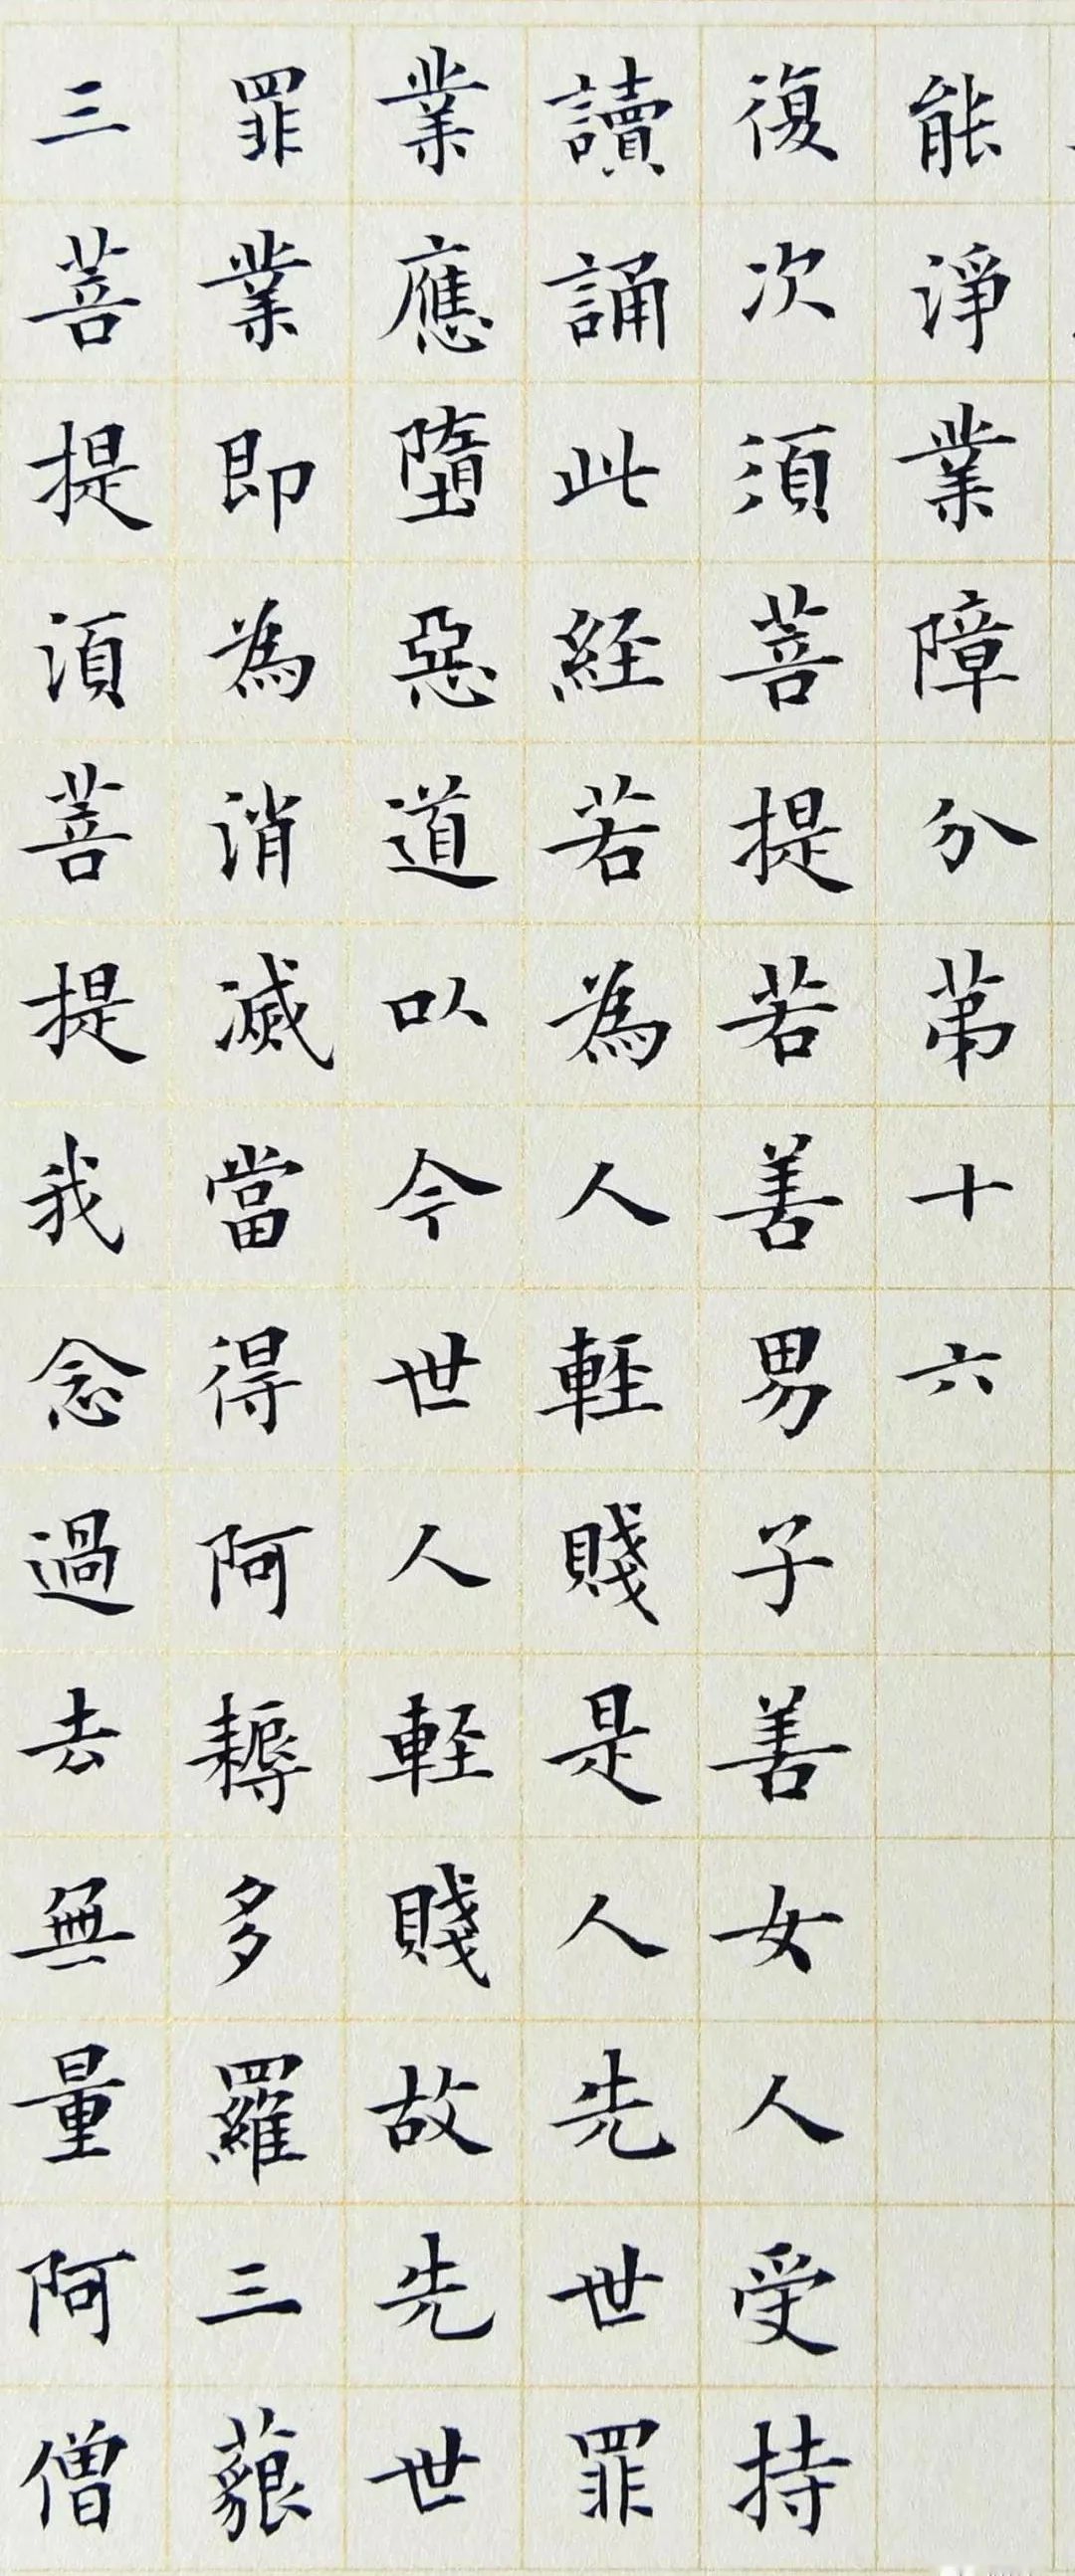 能淨業障分苐十六
復次須菩提若善男子善女人受持
讀誦此経若為人軽賤是人先世罪
業應墮惡道以今世人軽賤故先世
罪業即為消滅當得阿耨多羅三藐
三菩提湏菩提我念過去無量阿僧